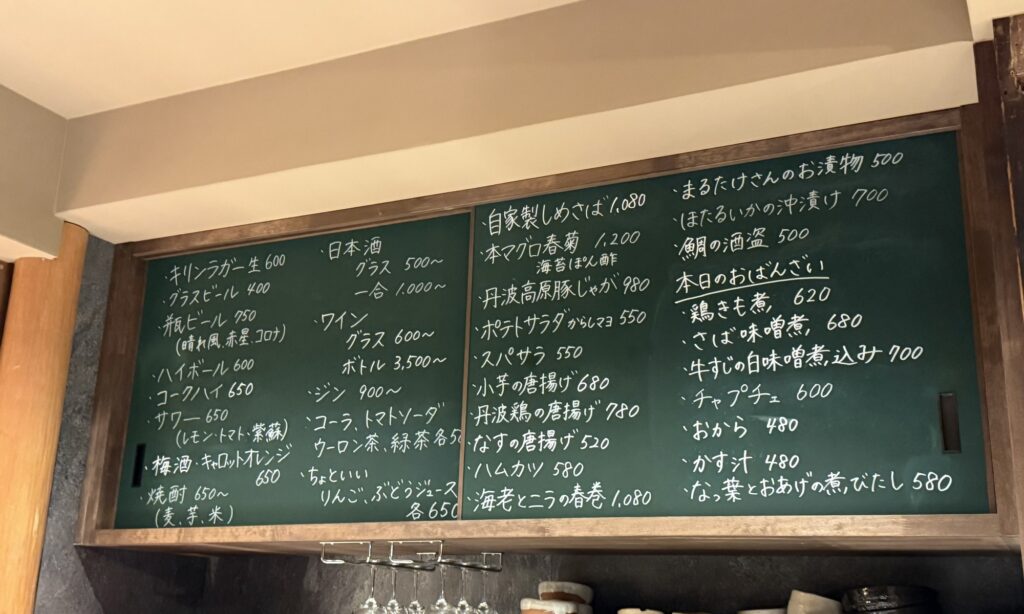 ・キリンラガー生 600
・グラスビール 400
・瓶ビール 750
(晴れ風、赤星、コロナ)
・ハイボール 600
・コークハイ 650
・サワー 650
(レモン・トマト・紫蘇)
・梅酒・キャロットオレンジ
650
・焼酎 650〜
(麦、芋、米)
・日本酒
グラス 500〜
一合 1,000〜
・ワイン
グラス 600〜
ボトル 3,500〜
・ジン 900〜
・コーラ、トマトソーダ
ウーロン茶、緑茶 各50
・ちょといい
りんご、ぶどうジュース
各650
・自家製しめさば 1,080
・本マグロ春菊 1,200
海苔ぽん酢
・丹波高原豚じゃが 980
・ポテトサラダ からしマヨ 550
・スパサラ 550
・小芋の唐揚げ 680
・丹波鶏の唐揚げ 780
・なすの唐揚げ 520
・ハムカツ 580
・海老とニラの春巻 1,080
・まるたけさんのお漬物 500
・ほたるいかの沖漬け 700
・鯛の酒盗 500
本日のおばんざい
・鶏きも煮 620
・さば味噌煮 680
・牛すじの白味噌煮込み 700
・チャプチェ 600
・おから 480
・かす汁 480
・なっ葉とおあげの煮びたし 580